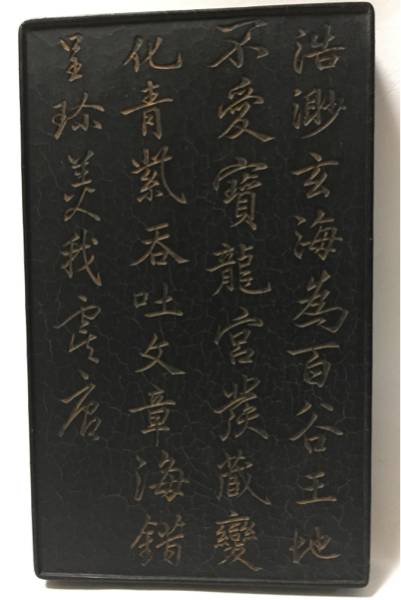 浩渺玄海為百谷王地
不愛寶龍宮發藏變
化青紫吞吐文章海錯
呈珎美我虞唐